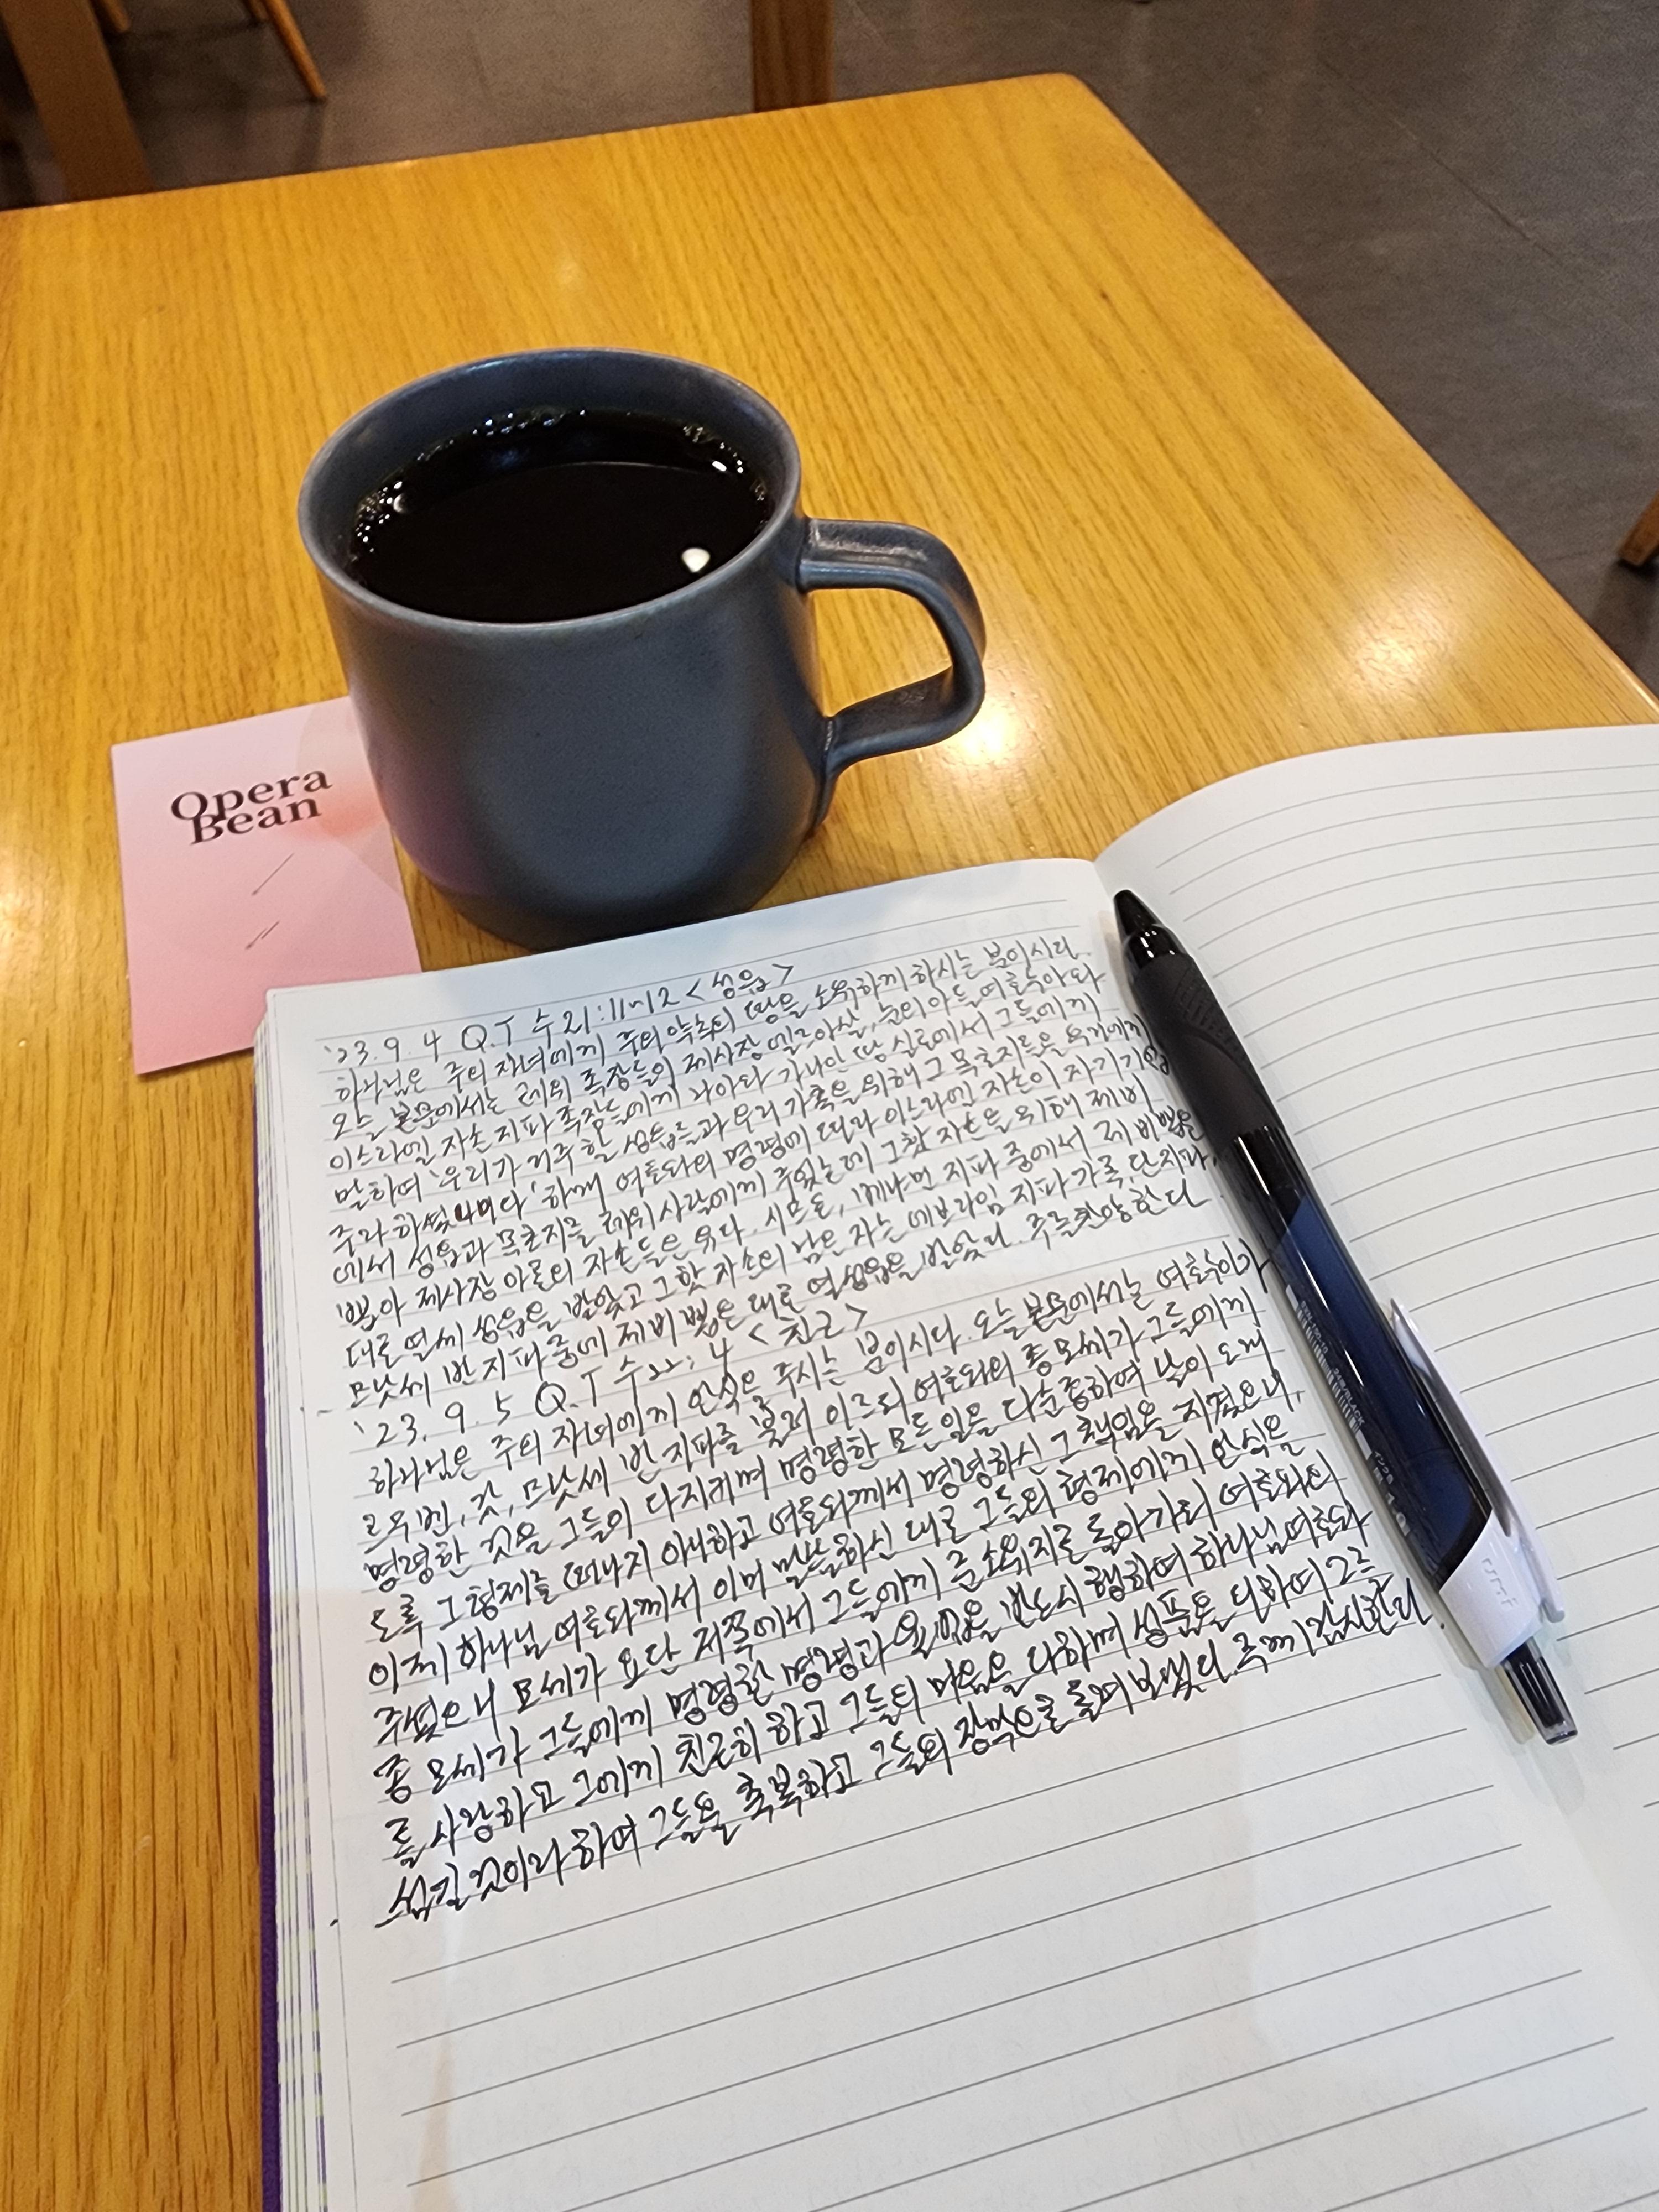 Opera
Bean
'23. 9. 4 Q.T 수21:11~12 <성읍>
하나님은 주의 자녀에게 주의 약속의 땅을 소유하게 하시는 분이시다.
오늘 본문에서는 레위 족장들의 제사장 엘르아살, 눈의 아들 여호수아와
이스라엘 자손 지파 족장들에게 나아와 가나안 땅 실로에서 그들에게
말하여 '우리가 거주할 성읍들과 우리 가축을 위해 그 목초지들을 우리에게
주라 하셨나이다' 하매 여호와의 명령에 따라 이스라엘 자손이 자기 기업
에서 성읍과 목초지를 레위 사람에게 주었는데 그핫 자손을 위해 제비
뽑아 제사장 아론의 자손들은 유다. 시므온, 베냐민 지파 중에서 제비뽑은
대로 열세 성읍을 받았고 그핫 자손의 남은 자는 에브라임 지파 가족, 단 지파,
므낫세 반 지파 중에 제비 뽑은 대로 열 성읍을 받았다. 주를 찬양한다.
'23. 9. 5 Q.T 수22:4 <친근>
하나님은 주의 자녀에게 안식은 주시는 분이시다. 오늘 본문에서는 여호수아가
르우벤, 갓, 므낫세 반 지파를 불러 이르되 여호와의 종 모세가 그들에게
명령한 것을 그들이 다 지키며 명령한 모든 일을 다 순종하여 날이 오래
도록 그 형제를 떠나지 아니하고 여호와께서 명령하신 그 책임을 지켰으니,
이제 하나님 여호와께서 이미 말씀하신 대로 그들의 형제에게 안식을
주셨으니 모세가 요단 저쪽에서 그들에게 준 소유지로 돌아가되 여호와의
종 모세가 그들에게 명령한 명령과 율법을 반드시 행하여 하나님 여호와
를 사랑하고 그에게 친근히 하고 그들의 마음을 다하며 성품을 다하여 그를
섬길 것이라 하여 그들을 축복하고 그들의 장막으로 돌려 보냈다. 주께 감사한다.